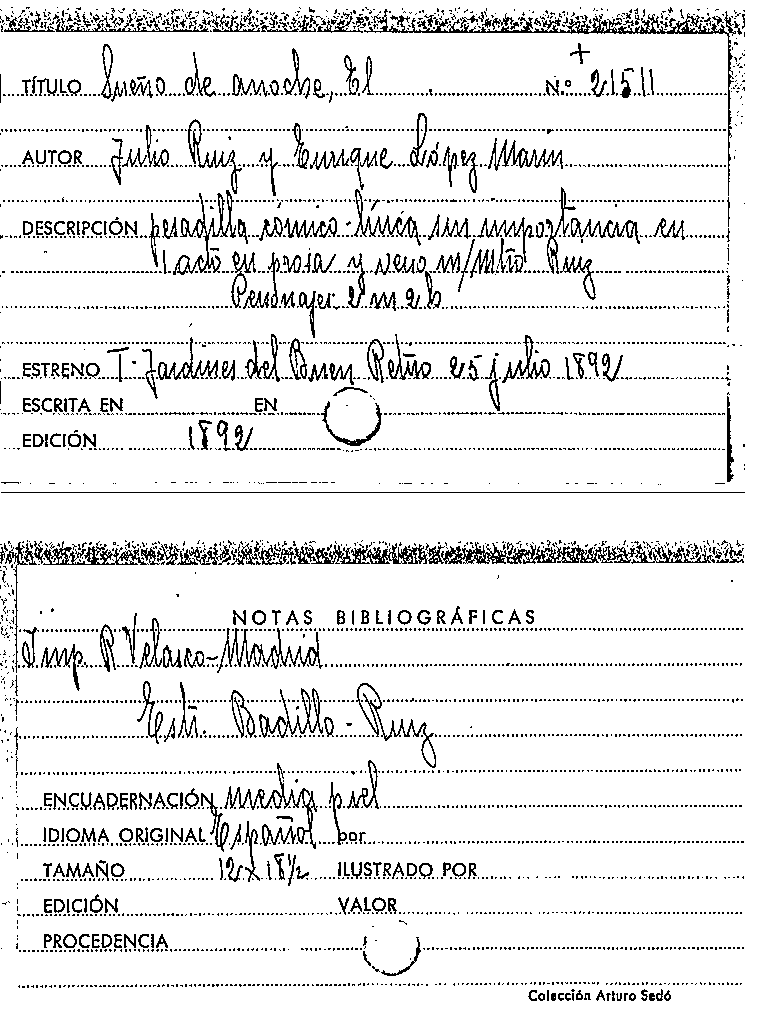 +
TÍTULO Sueño de anoche, El N.º 21511
AUTOR Julio Ruiz y Enrique López Marín
DESCRIPCIÓN pesadilla cómico-lírica sin importancia en
1 acto en prosa y verso m/Mtro Ruiz
Personajes 2 m 2 h
ESTRENO T. Jardines del Buen Retiro 25 julio 1892
ESCRITA EN EN
EDICIÓN 1892
NOTAS BIBLIOGRÁFICAS
Imp. R Velasco-Madrid
Estr. Badillo-Ruiz
ENCUADERNACIÓN media piel
IDIOMA ORIGINAL Español por
TAMAÑO 12 x 18½ ILUSTRADO POR
EDICIÓN VALOR
PROCEDENCIA
Colección Arturo Sedó